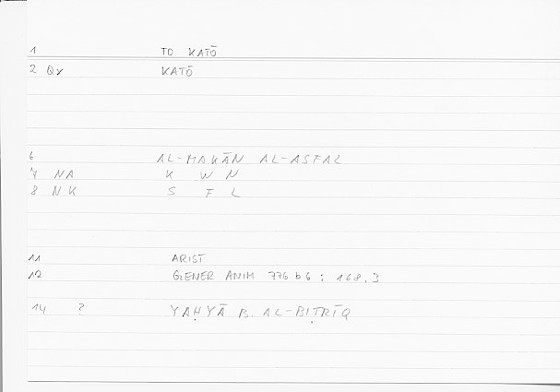 1 TO KATŌ
2 Qx KATŌ
6 AL-MAKĀN AL-ASFAL
7 NA K W N
8 NK S F L
11 ARIST
12 GENER ANIM 776 b 6 ; 168,3
14 ? YAḤYĀ B. AL-BIṬRĪQ